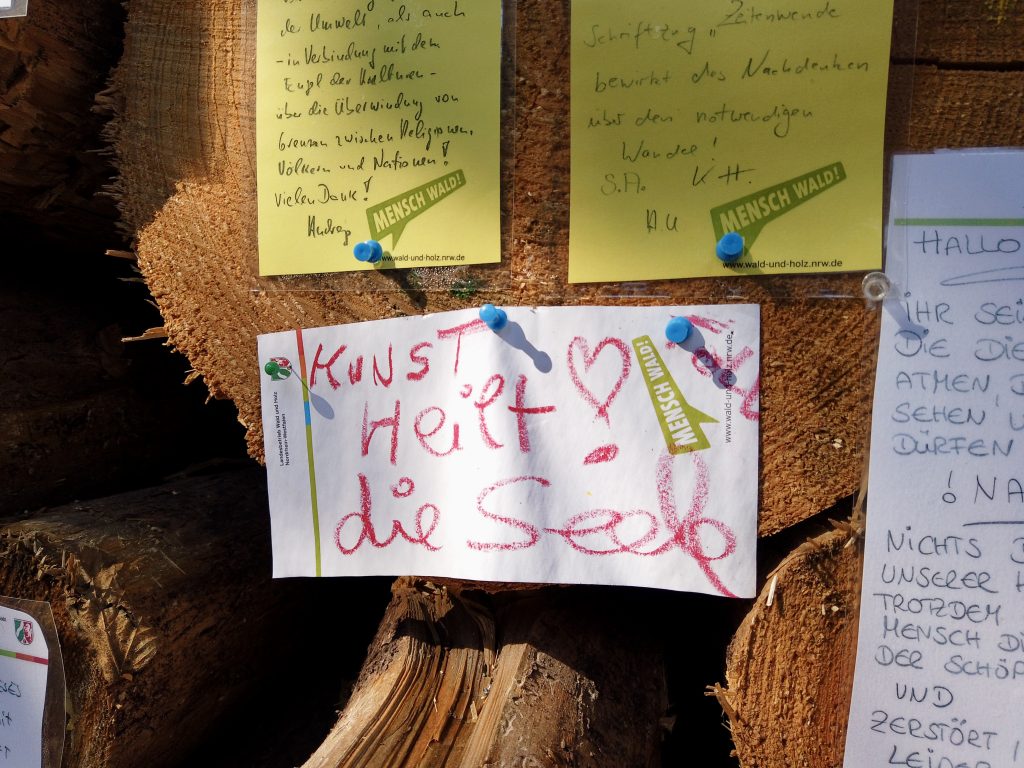 der Umwelt, als auch
- in Verbindung mit dem
Engl der Kulturen -
über die Überwindung von
Grenzen zwischen Religionen,
Völkern und Nationen!
Vielen Dank!
MENSCH WALD!
www.wald-und-holz.nrw.de
Schriftzug „Zeitenwende
bewirkt das Nachdenken
über den notwendigen
Wandel!
S.A. K H.
A.U
MENSCH WALD!
www.wald-und-holz.nrw.de
Landesbetrieb Wald und Holz
Nordrhein-Westfalen
KUNST
Heilt
die Seele
MENSCH WALD!
www.wald-und-
nrw.de
HALLO
IHR SEI
DIE DIE
ATMEN,
SEHEN U
DÜRFEN
! NA
NICHTS
UNSERER
TROTZDEM
MENSCH DI
DER SCHÖP
UND
ZERSTÖRT
LEIDER